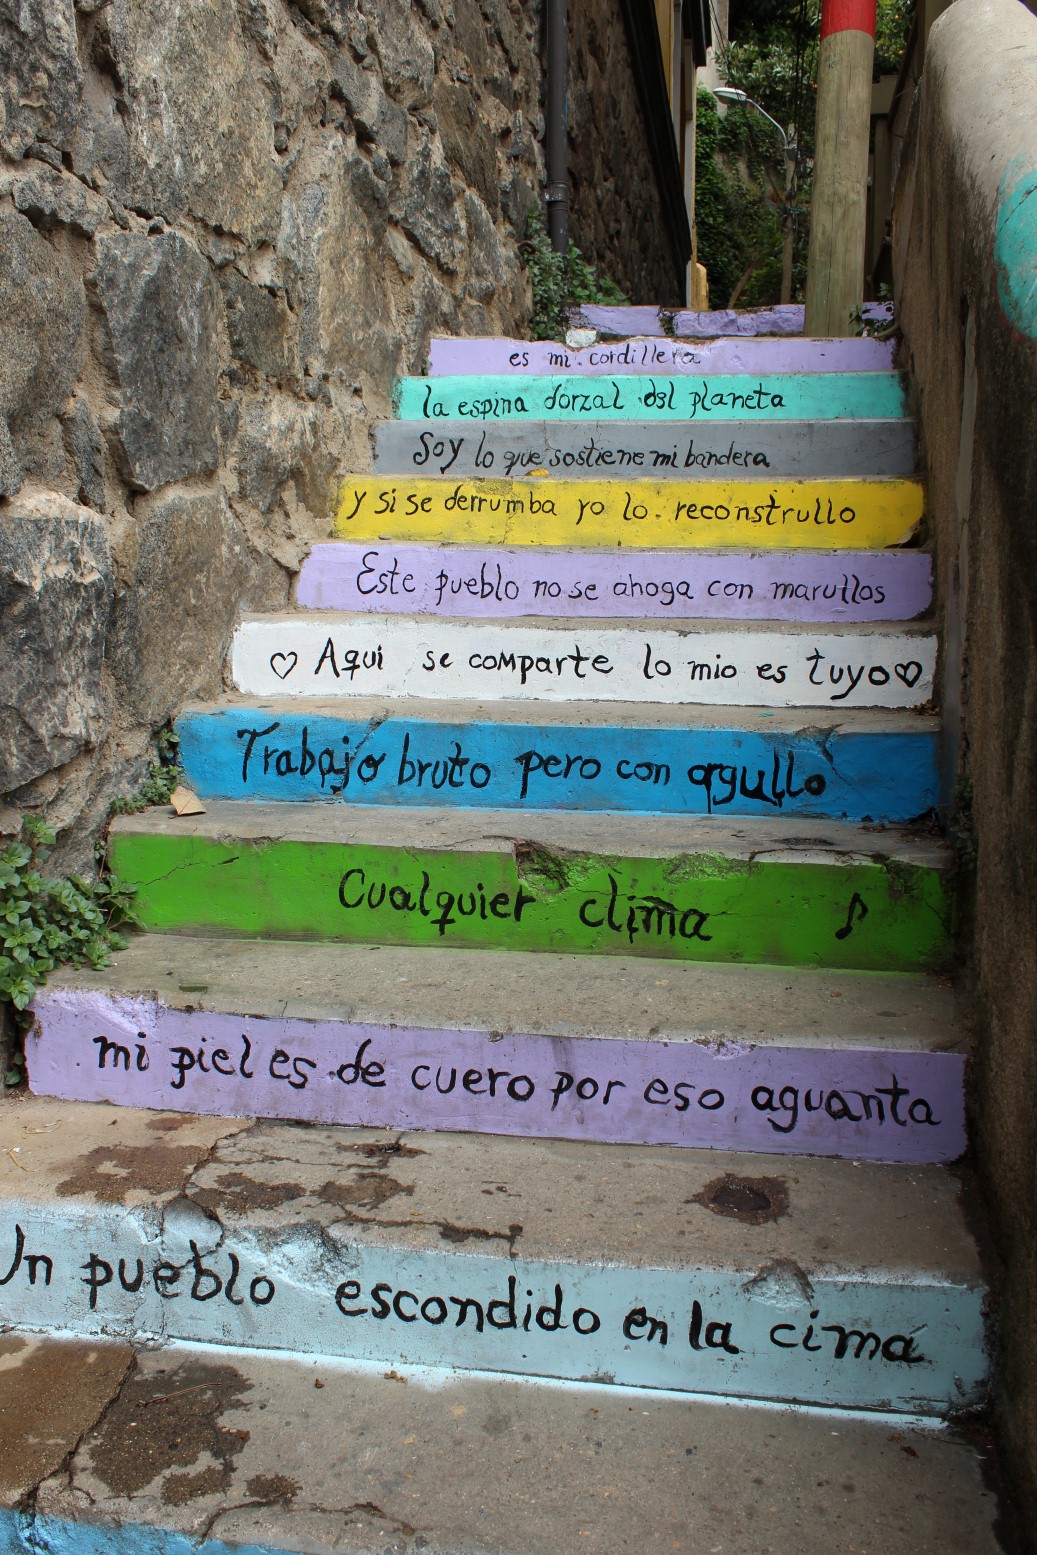 es mi cordillera
la espina dorzal del planeta
Soy lo que sostiene mi bandera
y si se derrumba yo lo reconstrullo
Este pueblo no se ahoga con marullos
Aqui se comparte lo mio es tuyo
Trabajo bruto pero con orgullo
Cualquier clima
mi piel es de cuero por eso aguanta
Un pueblo escondido en la cima